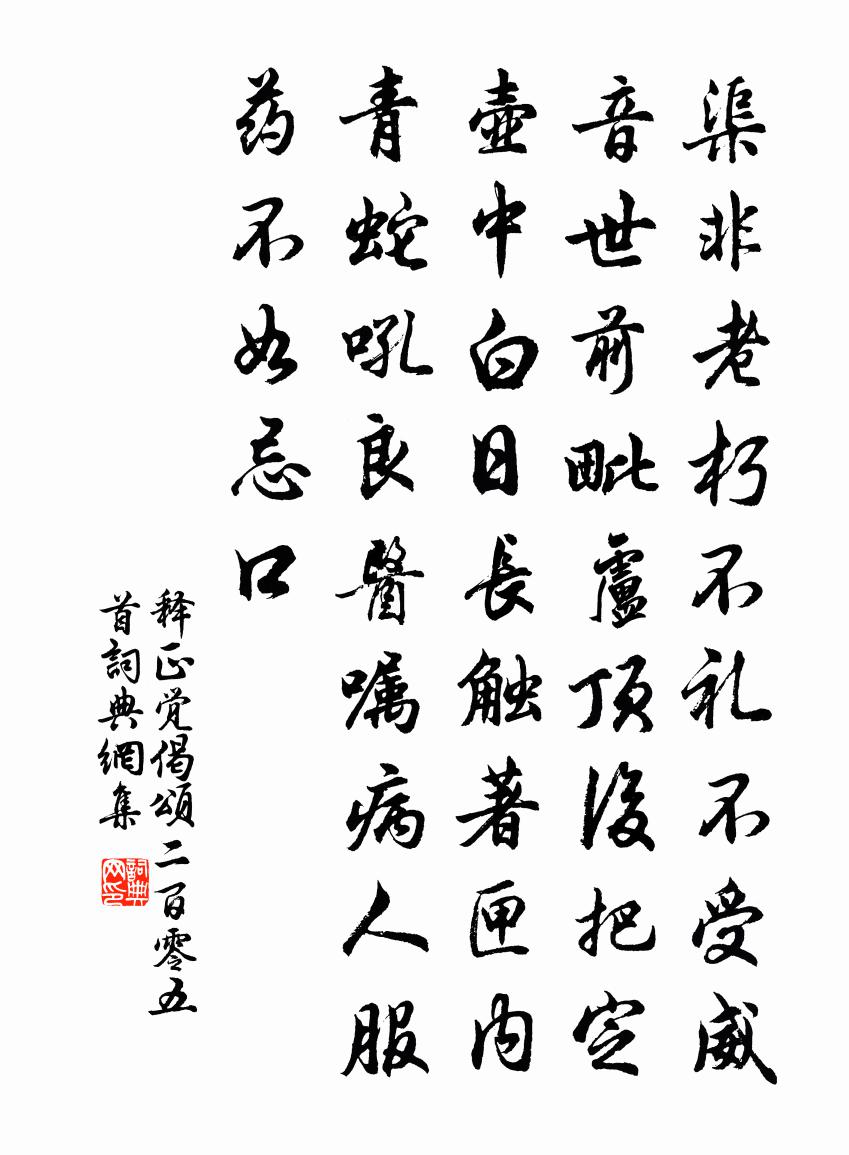 渠非老朽不礼不受威
音世前毗盧顶後把定
壶中白日長触著匣内
青蛇吼良醫嘱病人服
药不如忌口
释正觉偈頌二百零五
首詞典網集
詞典
网印